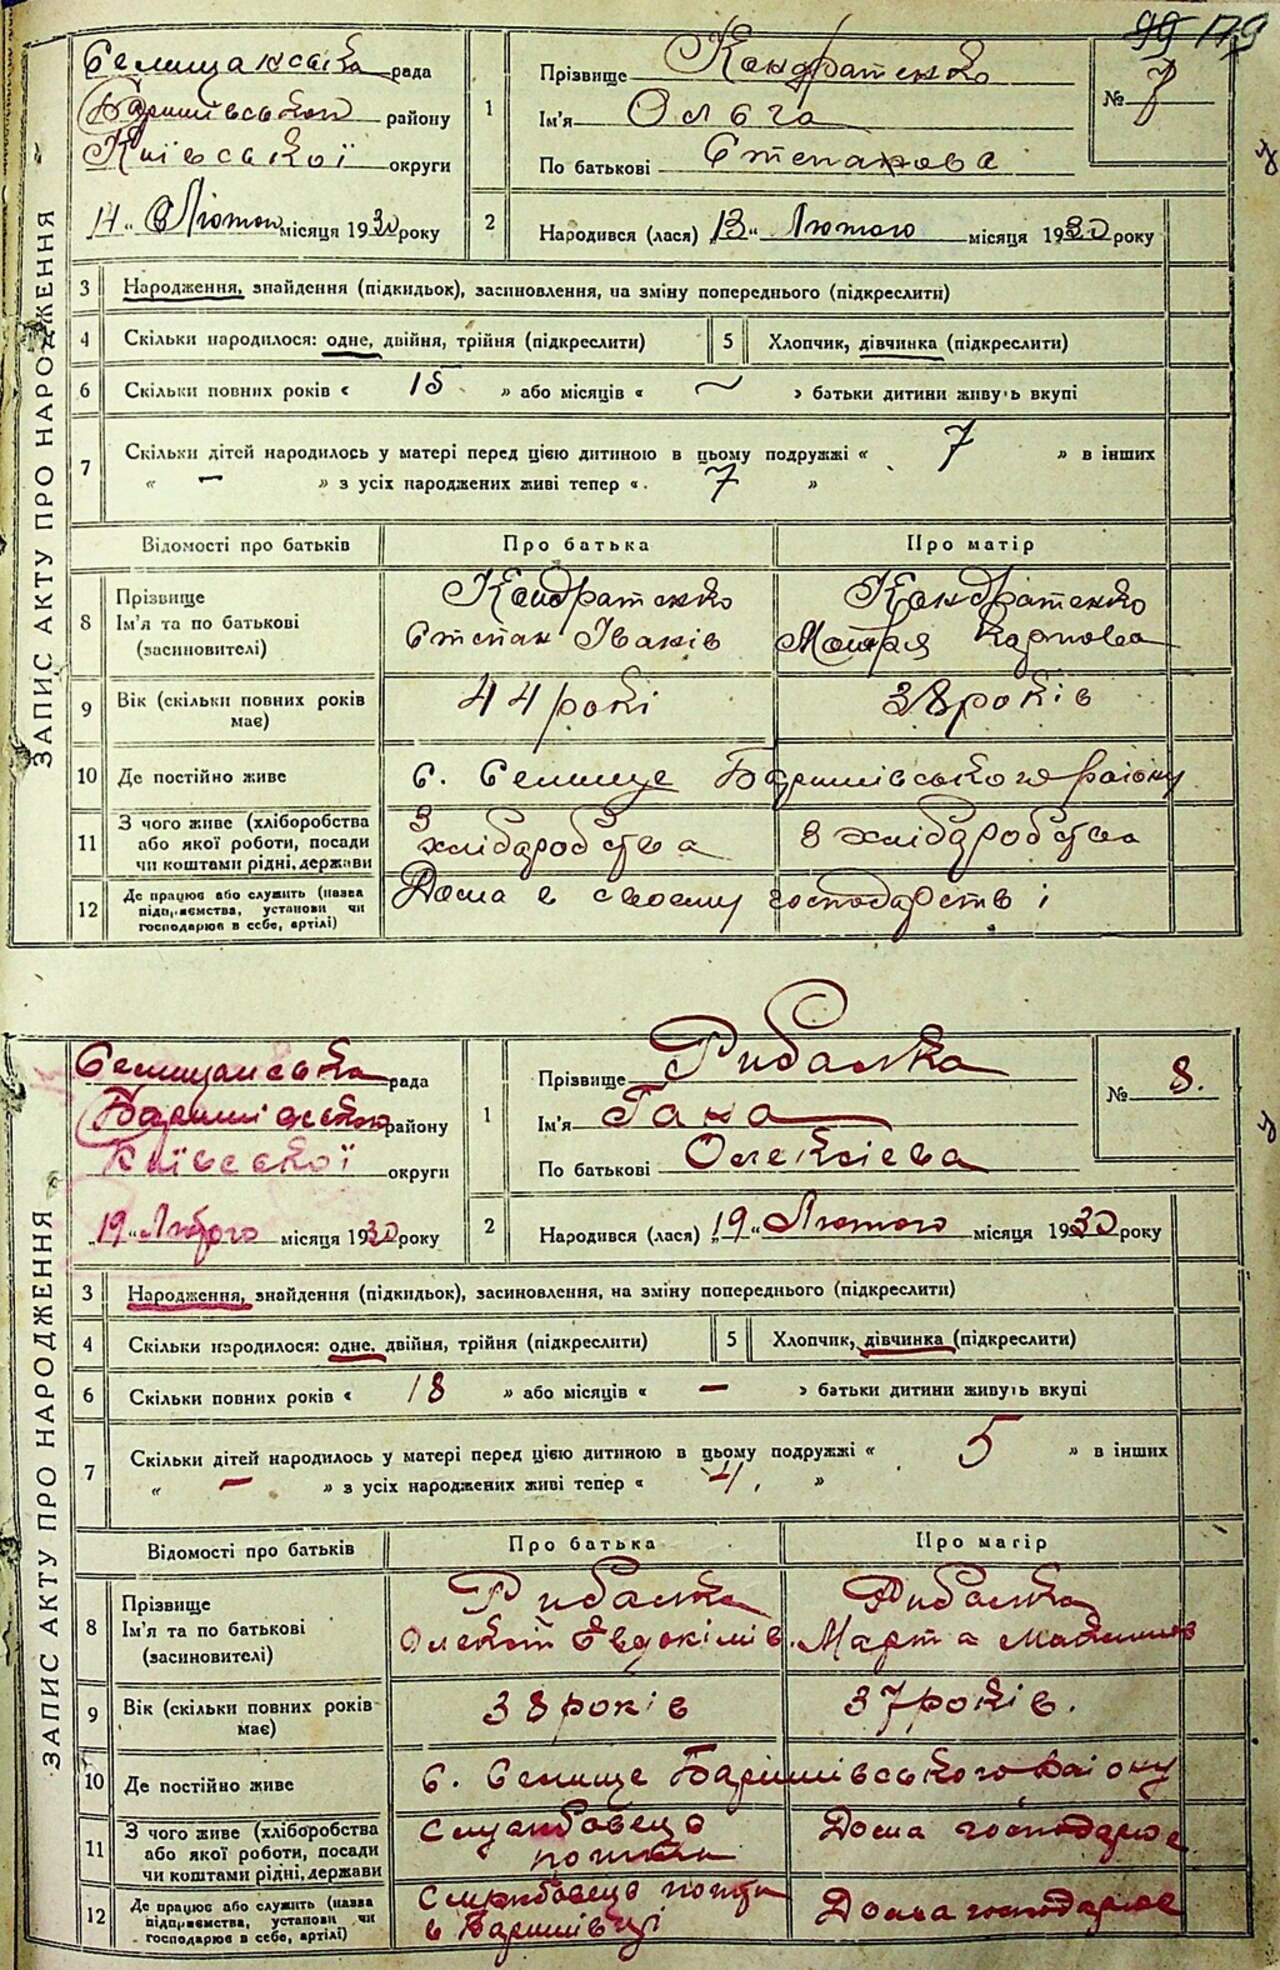 99 179
ЗАПИС АКТУ ПРО НАРОДЖЕННЯ
Селищанська рада
Баришівського району
Київської округи
14 " Лютого місяця 1930 року
1
Прізвище Кондратенко
Ім'я Ольга
По батькові Степанова
№ 7
2
Народився (лася) „13" Лютого місяця 1930 року
3 Народження, знайдення (підкидьок), засиновлення, на зміну попереднього (підкреслити)
4 Скільки народилося: одне, двійня, трійня (підкреслити) 5 Хлопчик, дівчинка (підкреслити)
6 Скільки повних років « 15 » або місяців « ~ » батьки дитини живуть вкупі
7 Скільки дітей народилось у матері перед цією дитиною в цьому подружжі « 7 » в інших
« — » з усіх народжених живі тепер « 7 »
Відомості про батьків Про батька Про матір
8 Прізвище Ім'я та по батькові (засиновителі)
Кондратенко Степан Іванів
Кондратенко Мотря Карпова
9 Вік (скільки повних років має) 44 рокі 38 років
10 Де постійно живе с. Селище Баришівського району
11 З чого живе (хліборобства або якої роботи, посади чи коштами рідні, держави
З хліборобства
З хліборобства
12 Де працює або служить (назва підприємства, установи чи господарює в себе, артілі)
Дома в своєму господарстві
ЗАПИС АКТУ ПРО НАРОДЖЕННЯ
Селищанська рада
району
Київської округи
„19" Лютого місяця 1930 року
1
Прізвище Рибалка
Ім'я Гана
По батькові Олексієва
№ 8.
2
Народився (лася) „19" Лютого місяця 1930 року
3 Народження, знайдення (підкидьок), засиновлення, на зміну попереднього (підкреслити)
4 Скільки народилося: одне, двійня, трійня (підкреслити) 5 Хлопчик, дівчинка (підкреслити)
6 Скільки повних років « 18 » або місяців « — » батьки дитини живуть вкупі
7 Скільки дітей народилось у матері перед цією дитиною в цьому подружжі « 5 » в інших
« — » з усіх народжених живі тепер « 4. »
Відомості про батьків Про батька Про матір
8 Прізвище Ім'я та по батькові (засиновителі)
Рибалка Олексій Євдокімів.
Рибалка Марта
9 Вік (скільки повних років має) 38 років 37 років.
10 Де постійно живе с. Селище Баришівського району
11 З чого живе (хліборобства або якої роботи, посади чи коштами рідні, держави
Службовець пошти
Дома господарює
12 Де працює або служить (назва підприємства, установи чи господарює в себе, артілі)
Службовець пошти в Баришівці
Дома господарює